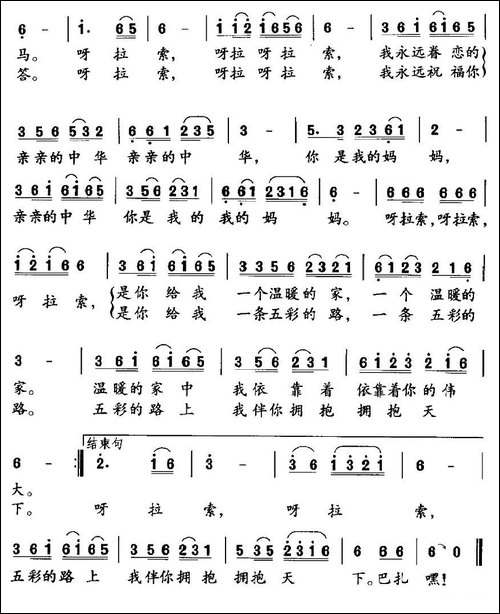 6 - | 1. 65 | 6 - | 1121 656 | 6 - | 361 6165 |
马。 呀 拉 索， 呀拉 呀拉 索， 我永远眷恋的
答。 呀 拉 索， 呀拉 呀拉 索， 我永远祝福你
356 532 | 661 235 | 3 - | 5. 3 2361 | 2 - |
亲亲的中华 亲亲的中 华， 你 是我的妈 妈，
361 6165 | 356 231 | 661 2316 | 6 - | 666 666 |
亲亲的中华 你是我的 我的妈 妈。 呀拉索，呀拉索，
1216 6 | 361 6165 | 3356 2321 | 6123 216 |
呀拉索， 是你给我 一个温暖的家，一个温暖的
是你给我 一条五彩的路，一条五彩的
3 - | 361 6165 | 356 231 | 6123 216 |
家。 温暖的家中 我依靠着 依靠着你的伟
路。 五彩的路上 我伴你拥抱 拥抱天
结束句
6 - :‖ 2. 16 | 3 - | 36 1321 | 6 - |
大。
下。 呀 拉 索， 呀 拉 索，
361 6165 | 356 231 | 535 2316 | 6 66 | 6 0 ‖
五彩的路上 我伴你拥抱 拥抱天 下。巴扎 嘿！